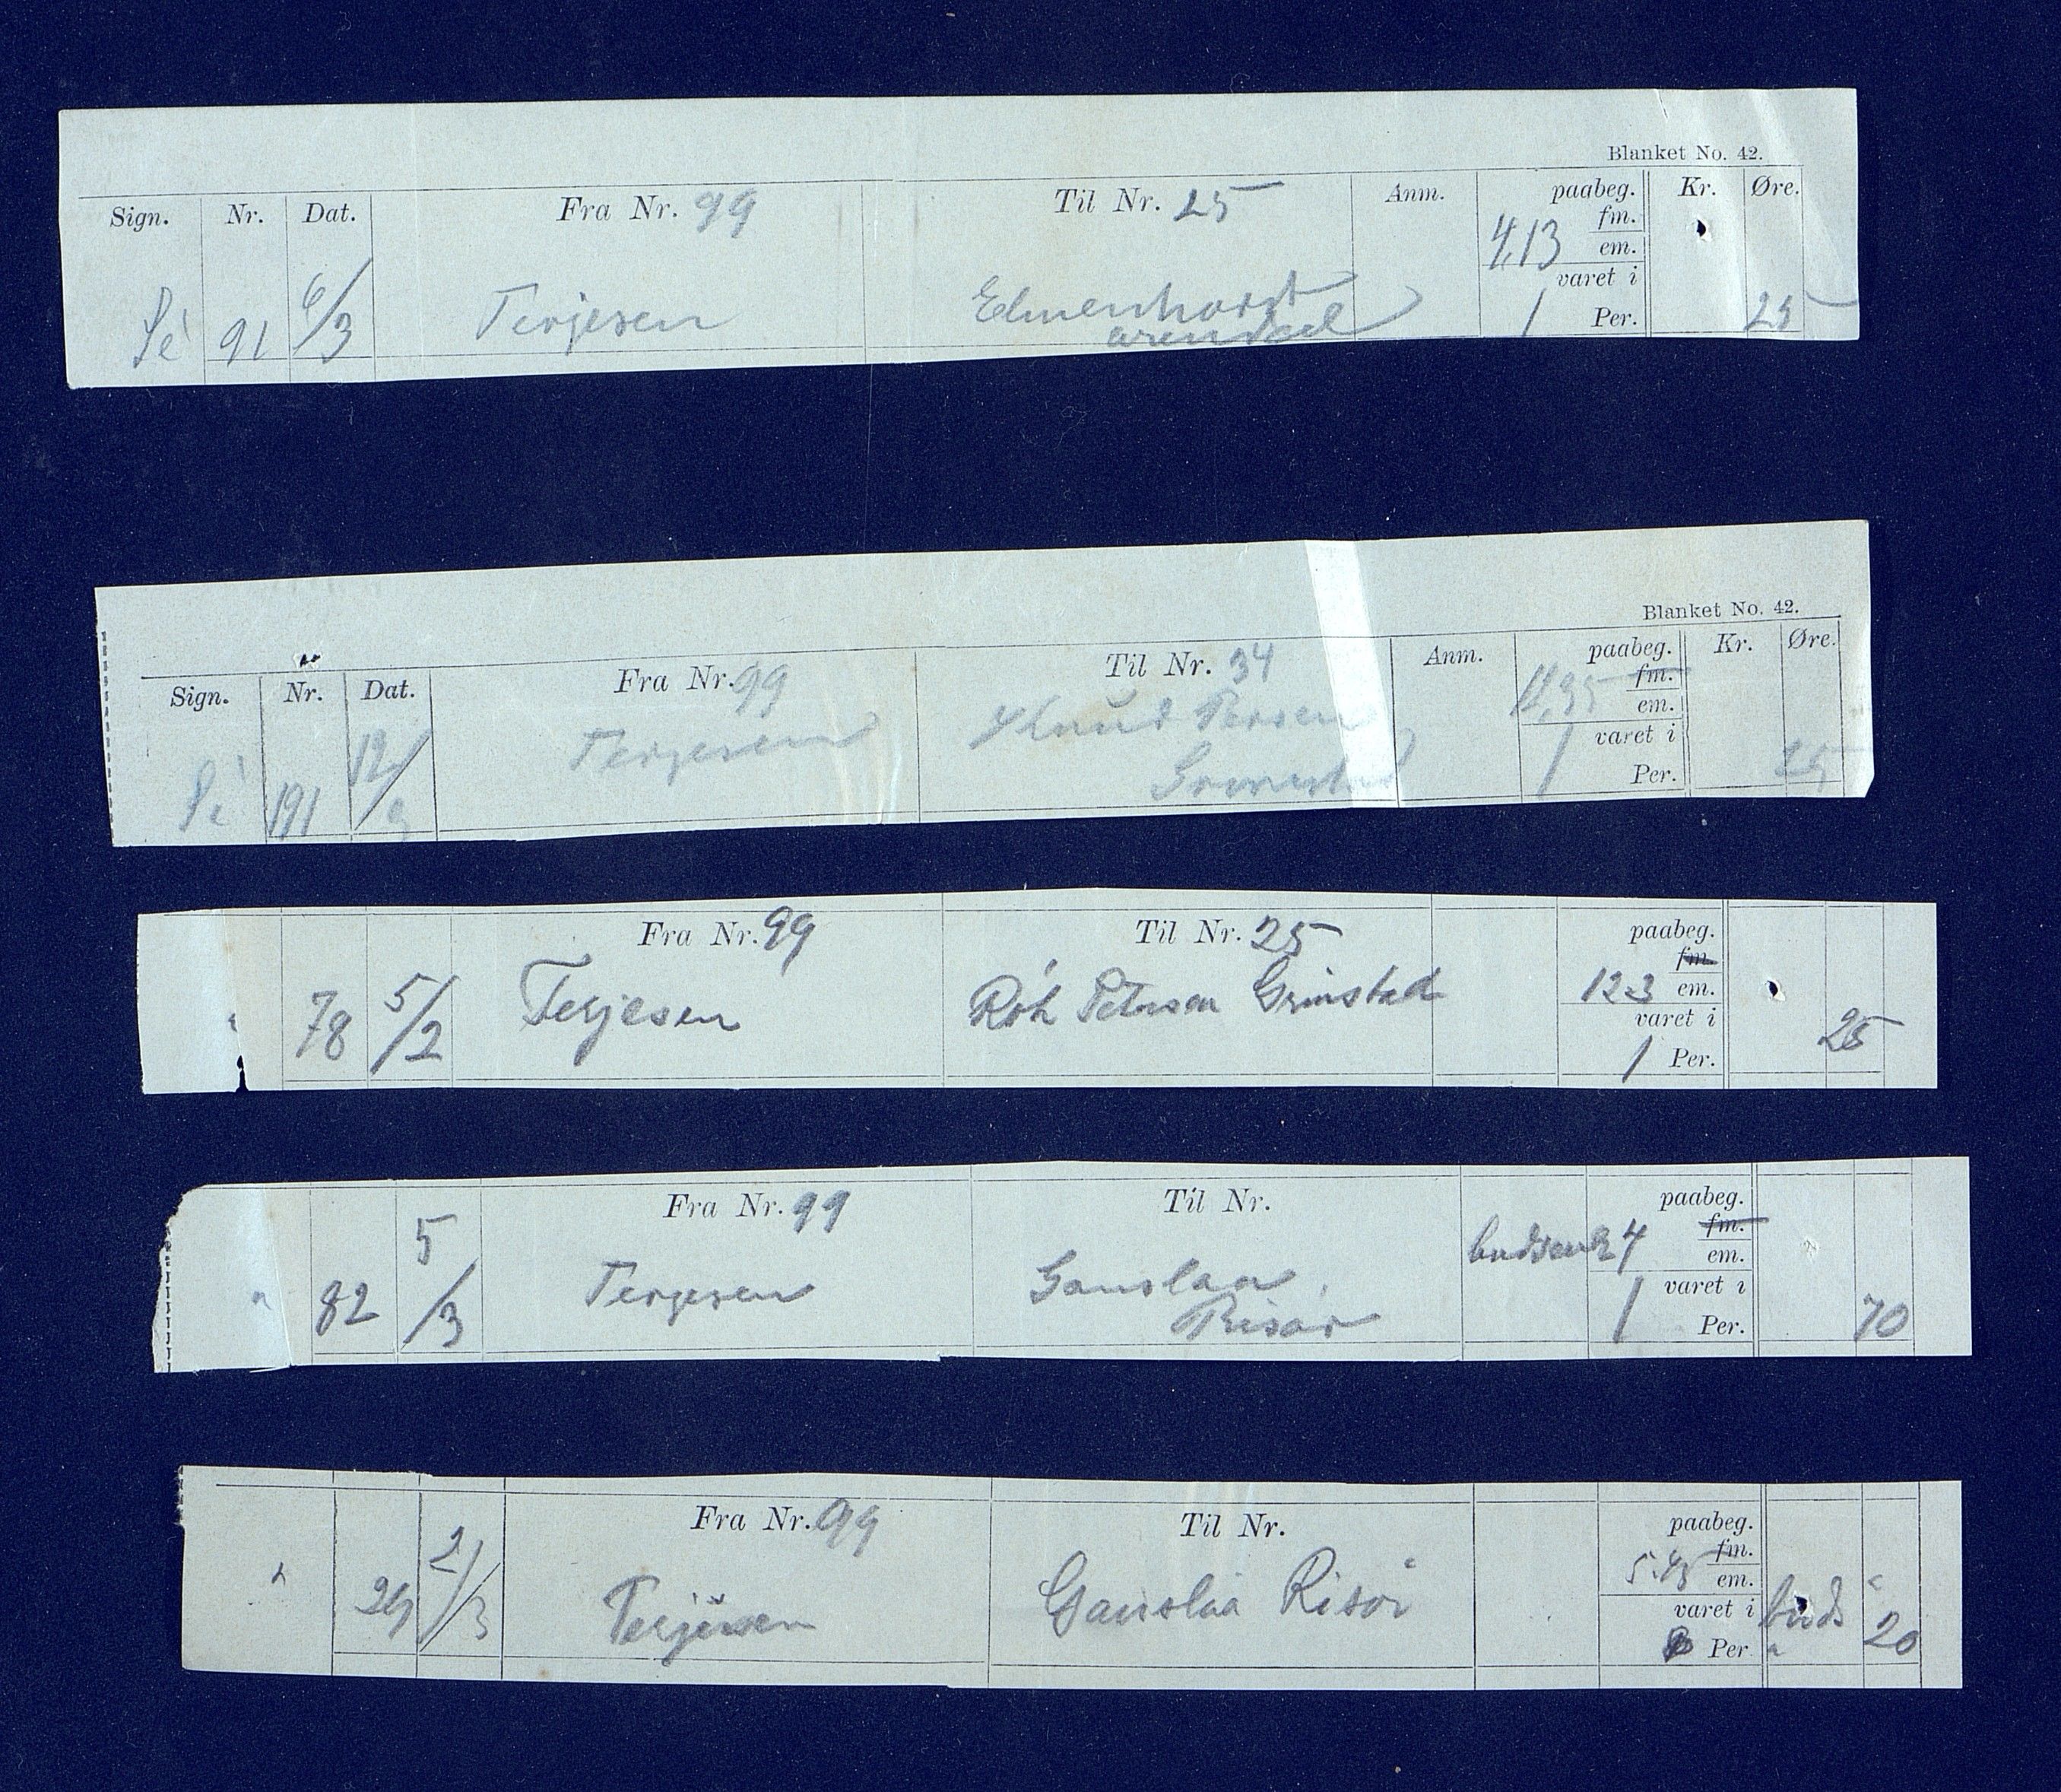 Blanket No. 42.
Sign. Nr. Dat. Fra Nr. 99 Til Nr. 25 Anm. paabeg. Kr. Øre.
fm.
4,13 em.
varet i
Sé 91 6/3 Terjesen Elmenhorst 1 Per. 25
Arendal
Blanket No. 42.
Sign. Nr. Dat. Fra Nr. 99 Til Nr. 34 Anm. paabeg. Kr. Øre.
fm.
em.
12/ Terjesen Knud varet i
Sé 191 1 Per. 25
Fra Nr. 99 Til Nr. 25 paabeg.
fm.
123 em.
varet i
78 5/2 Terjesen Rób Petersen Grimstad 1 Per. 25
Fra Nr. 99 Til Nr. paabeg.
fm.
em.
varet i
82 5/3 Terjesen Ganslaa 1 Per. 70
Risör
Fra Nr. 99 Til Nr. paabeg.
fm.
em.
varet i
2/3 Terjesen Ganslaa Risör Per buds 20